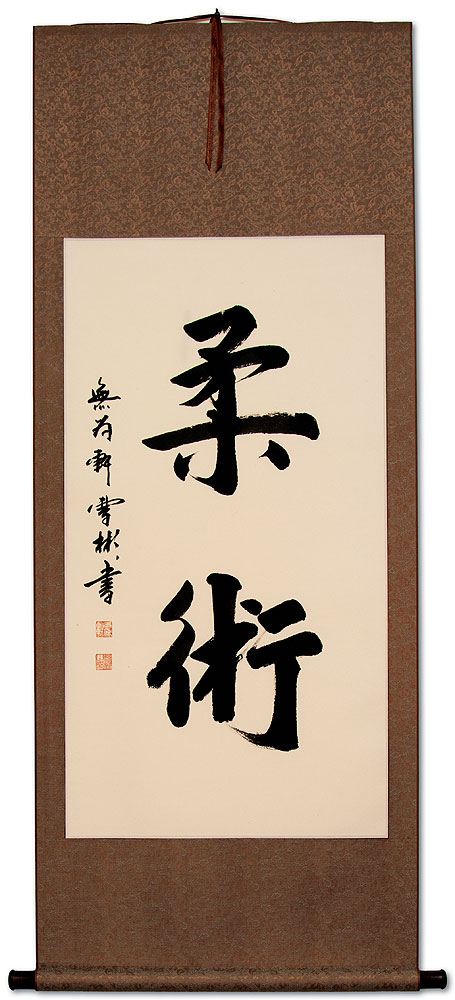 柔術
無為軒雪彬書